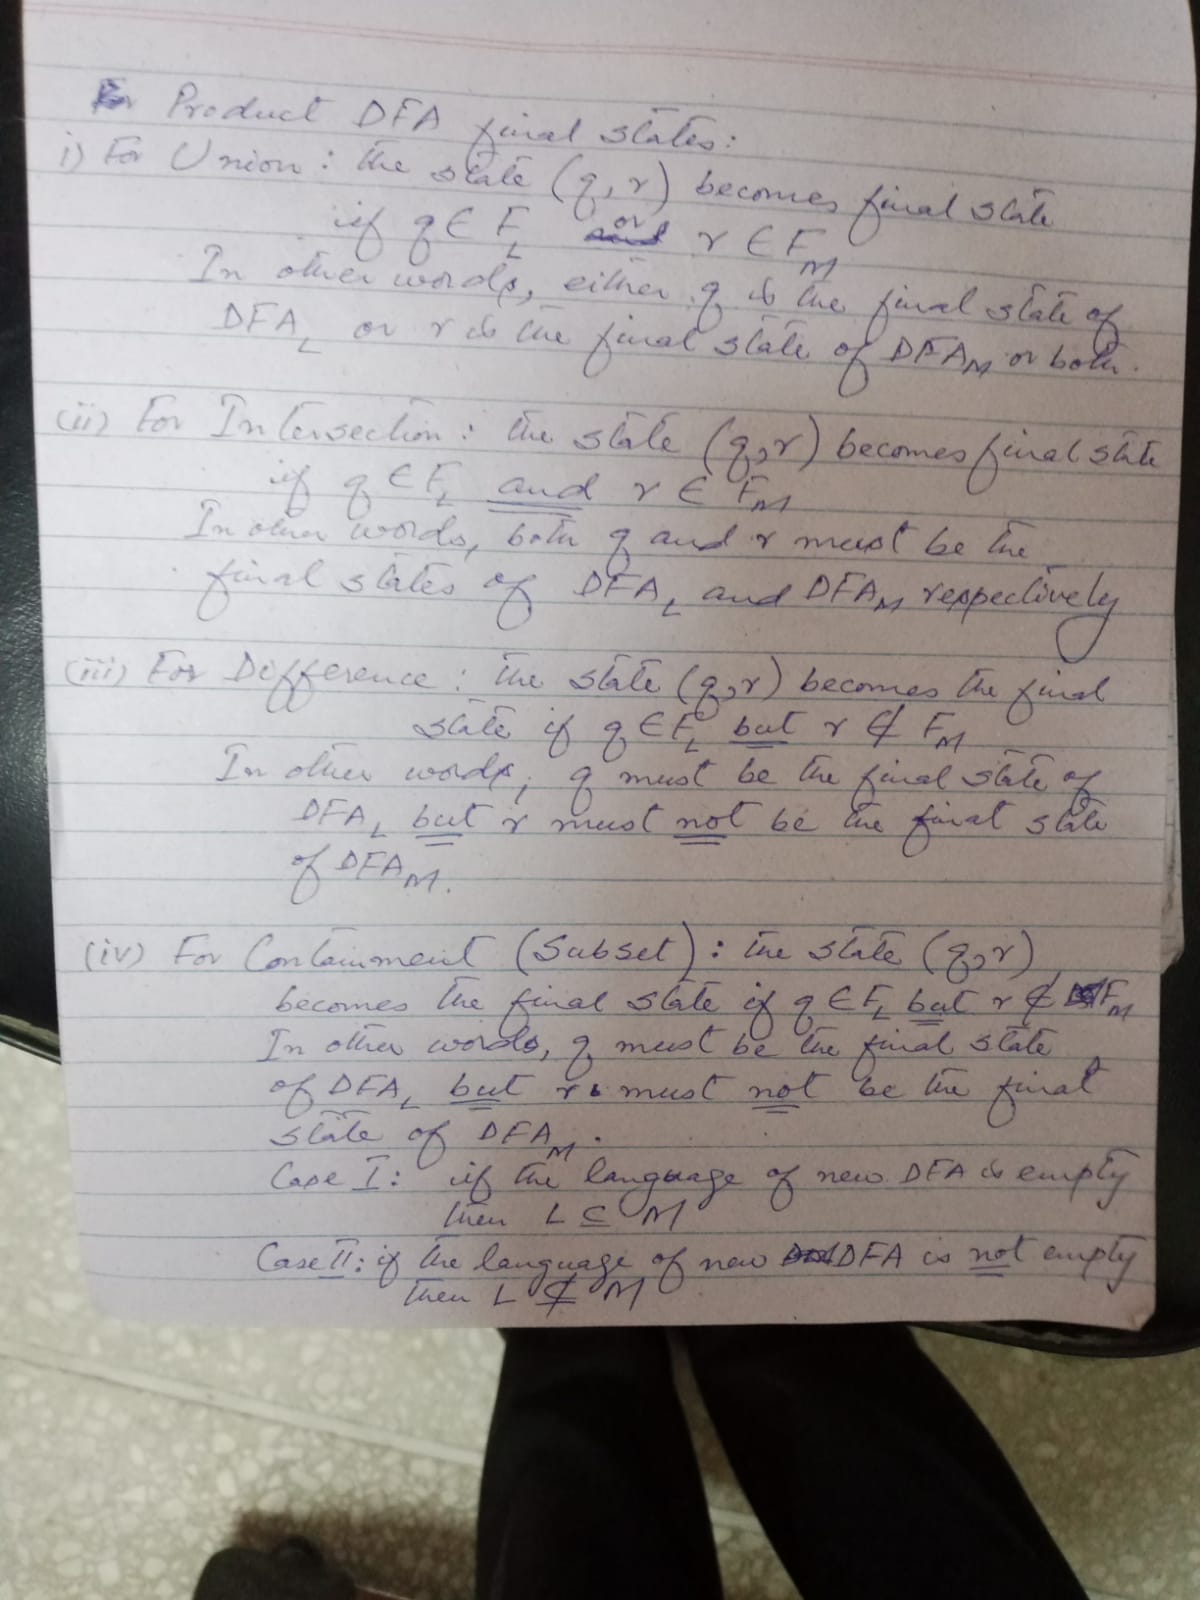 Product DFA final states:
i) For Union: the state (q, r) becomes final state
if q ∈ F_L or r ∈ F_M
In other words, either q is the final state of
DFA_L or r is the final state of DFA_M or both.
(ii) For Intersection: the state (q, r) becomes final state
if q ∈ F_L and r ∈ F_M
In other words, both q and r must be the
final states of DFA_L and DFA_M respectively
(iii) For Difference: the state (q, r) becomes the final
state if q ∈ F_L but r ∉ F_M
In other words, q must be the final state of
DFA_L but r must not be the final state
of DFA_M.
(iv) For Containment (Subset): the state (q, r)
becomes the final state if q ∈ F_L but r ∉ F_M
In other words, q must be the final state
of DFA_L but r must not be the final
state of DFA_M.
Case I: if the language of new DFA is empty
then L ⊆ M
Case II: if the language of new DFA is not empty
then L ⊈ M